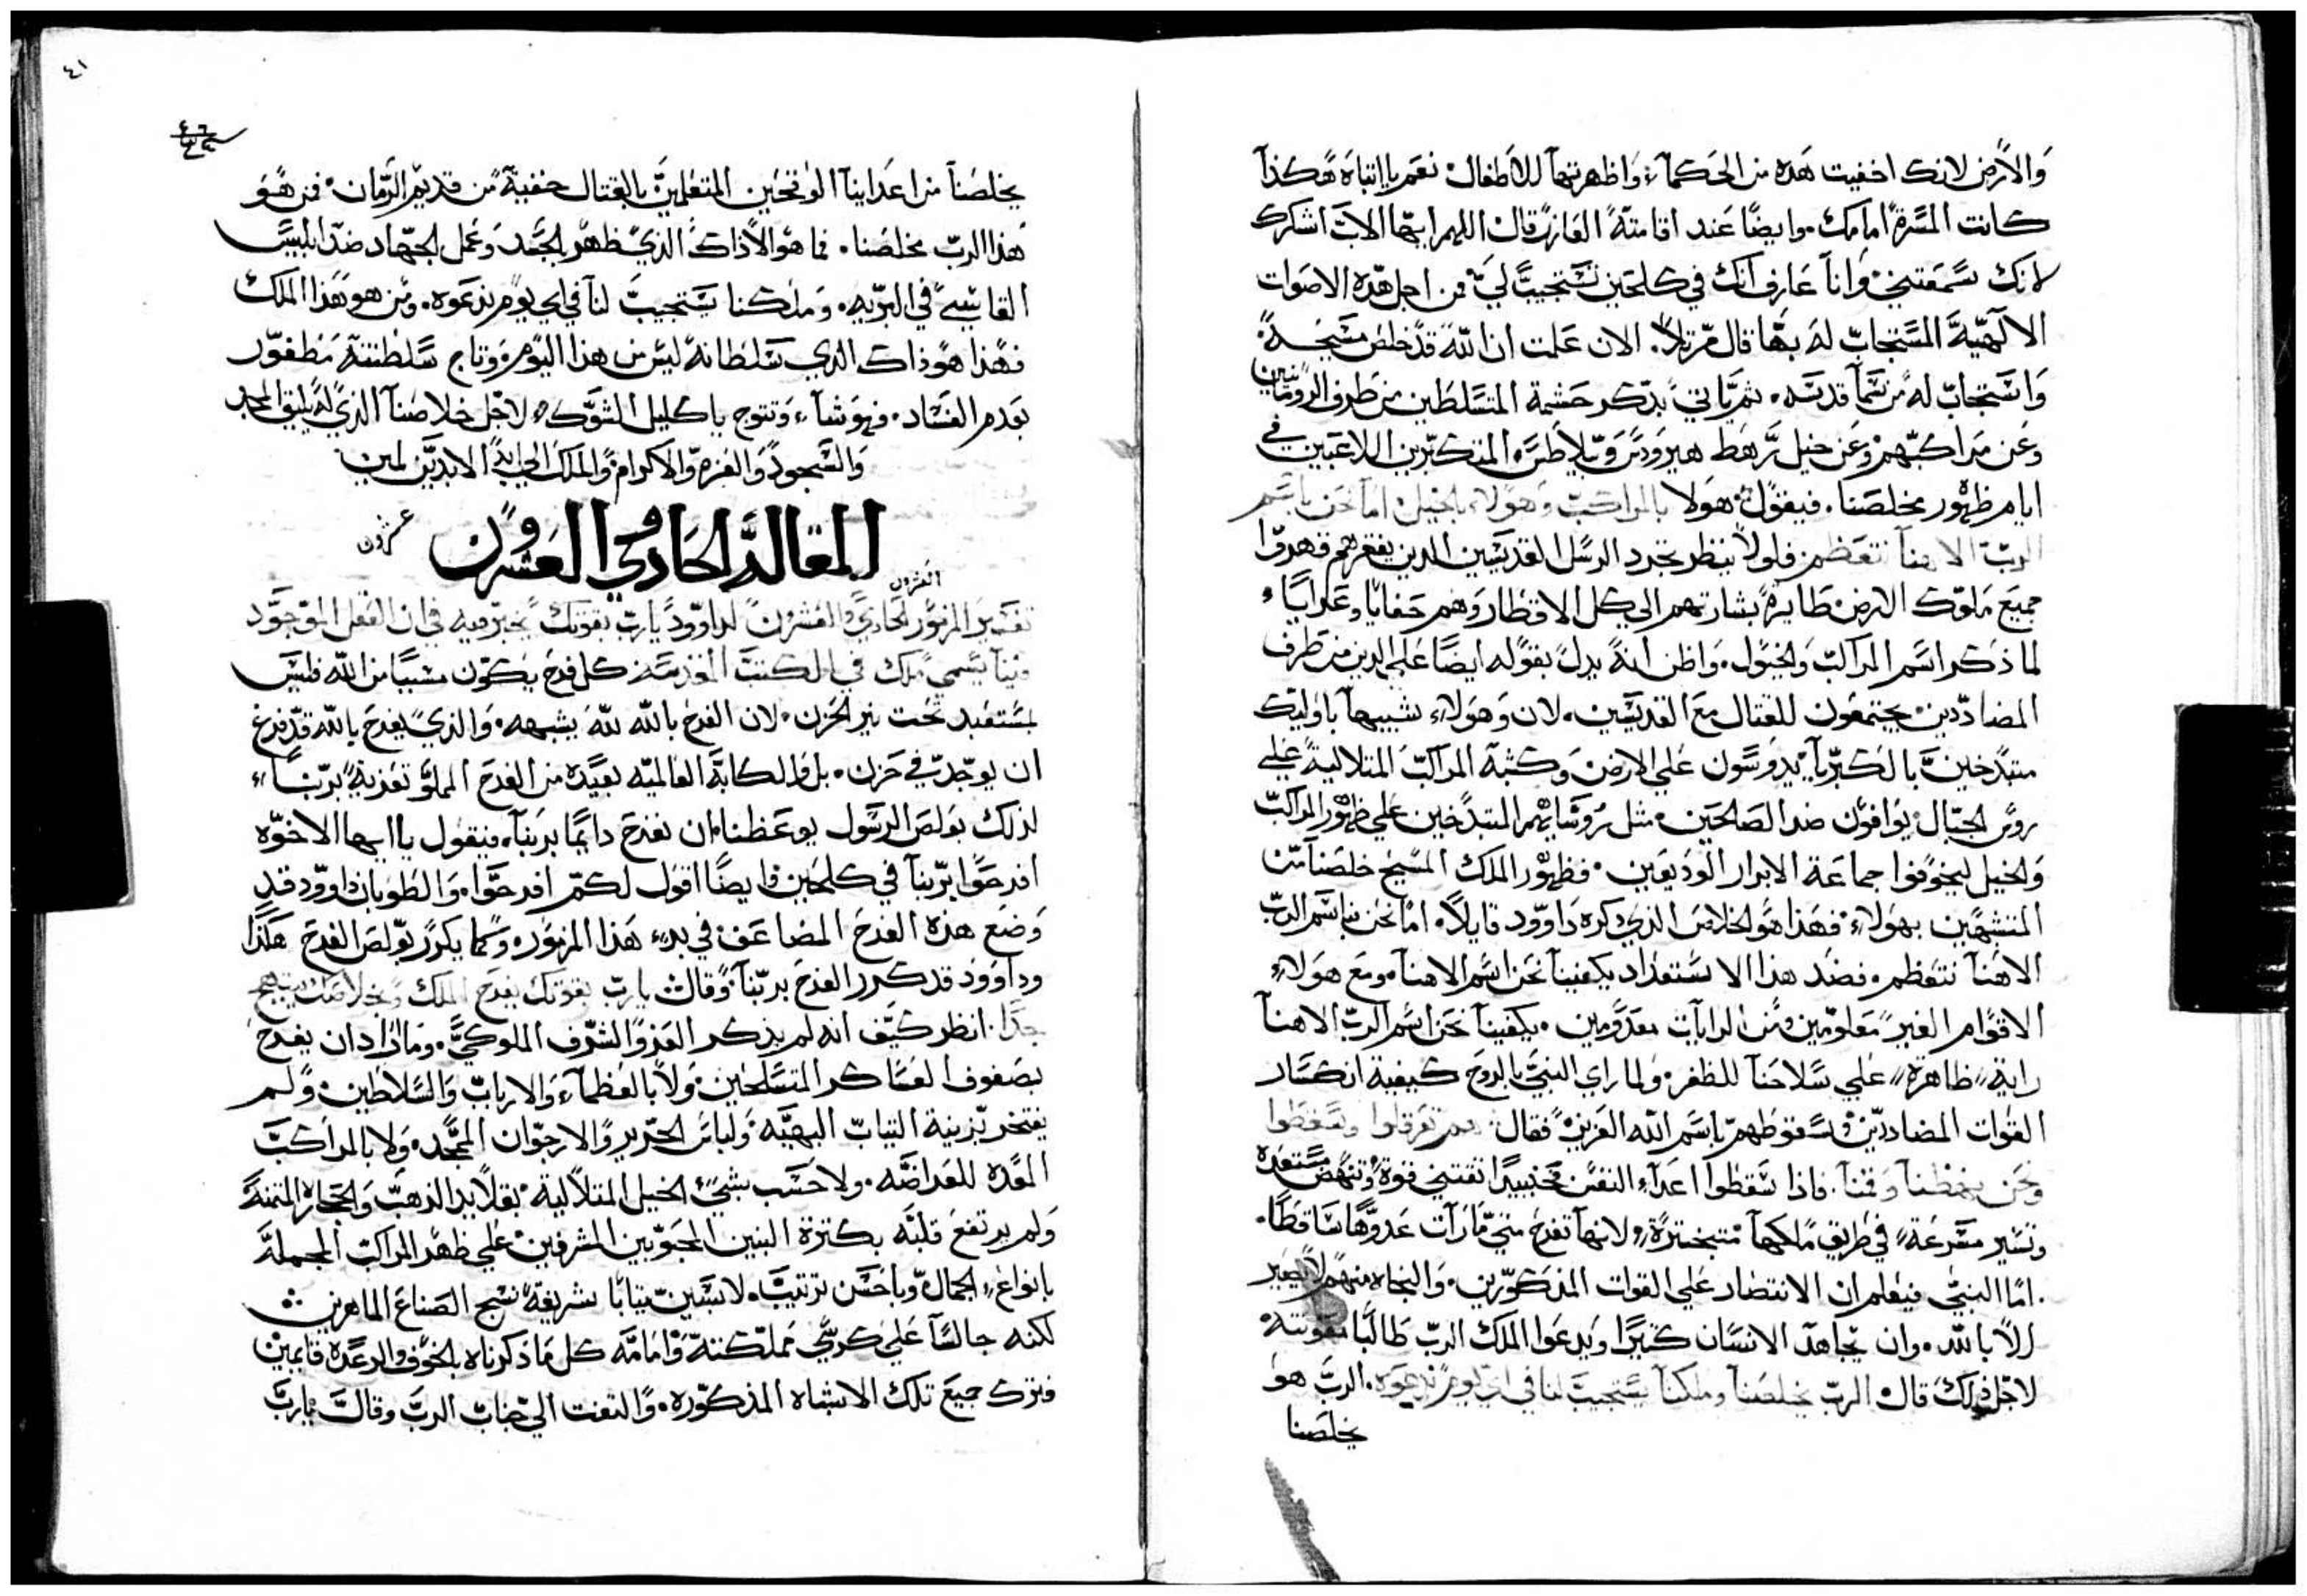 والأرض لانك اخفيت هذه من الحكمآء واظهرتها للاطفال نعم يا ابتاه هكذا
كانت المسرة امامك. وايضًا عند اقامته العازر قال اللهم ايها الاب اشكرك
لانك سمعتني وانا عارف انك في كلحين تستجيب لي فمن اجل هذه الاصوات
الالهية المستجاب له بها قال مرتلاً. الان علمت ان الله قد خلص مسيحه
واستجاب له من سما قدسه. ثم ياتي بذكر حشمة المتسلطين من طرف الرومانيين
وعن مراكبهم وعن خيل رهط هيرودس وبيلاطس المتكبرين اللاعبين في
ايام ظهور مخلصنا. فيقول هولا بالمراكب وهولاء بالخيل اما نحن باسم
الرب الاهنا نتعظم فلولا ينظر تجرد الرسل القديسين الدين بفقرهم قهروا
جميع ملوك الارض طايرة بشارتهم الي كل الاقطار وهم حفايا وعرايا
لما ذكر اسم المراكب والخيول. واظن انه يدل بقوله ايضًا علي الدين من طرف
المضاددين يجتمعون للقتال مع القديسين. لان وهولاء شبيهًا باوليك
متبدخين بالكبريآ يدوسون علي الارض وكشبه المراكب المتلالية علي
روس الجبال يوافون ضد الصالحين. مثل روسايهم المتبدخين علي ظهور المراكب
والخيل ليخوفوا جماعة الابرار الوديعين. فظهور الملك المسيح خلصنا من
المتشبهين بهولاء فهذا هو الخلاص الذي ذكره داوود قايلاً. اما نحن باسم الرب
الاهنا نتعظم. فضد هذا الاستعداد يكفينا نحن اسم الاهنا. ومع هولاء
الاقوام الغير معلومين ومن الرايات معدومين. يكفينا نحن اسم الرب الاهنا
راية ظاهرة علي سلاحنا للظفر ولما راي النبي بالروح كيفية انكسار
القوات المضاددين وسقوطهم باسم الله العزيز فقال هم تعرقلوا وسقطوا
ونحن نهضنا وقمنا. فاذا سقطوا اعدآء النفس فحينيدًا تقتني قوة وتنهض مستعده
وتسير مسرعة في طريق ملكها متبخترة لانها تفرح متي ما رآت عدوها ساقطًا.
اما النبي فيعلم ان الانتصار علي القوات المذكورين. والنجاه منهم لا يصير
الا بالله. وان يجاهد الانسان كثيرًا ويدعوا الملك الرب طالبًا معونته
لاجل ذلك قال الرب يخلصنا وملكنا يستجيب لنا في اي يوم ندعوه. الرب هو
يخلصنا
٤١
يخلصنا من اعداينا الوقحين المتعلمين بالقتال خفية من قديم الزمان. فمن هو
هذا الرب مخلصنا. فما هو الا ذاك الذي ظهر بالجسد وعمل الجهاد ضد ابليس
القاسي في البريه. وملكنا يستجيب لنا في اي يوم ندعوه. ومن هو هذا الملك
فهذا هو ذاك الذي سلطانه ليس من هذا اليوم وتاج سلطنته مظفور
بعدم الفساد. فهو شآء وتتوج باكليل الشوك لاجل خلاصنا الذي له يليق المجد
والسجود والعزه والاكرام والملك الي ابد الابدين امين
المقالة الحادي والعشرون
عشرون
العشرون
تفسير المزمور الحادي والعشرون لداوود يارب بقوتك يخبر فيه في ان العقل الموجود
فينا يسمي ملك في الكتب المقدسة كل فرح يكون مسببًا من الله فليس
بمستعبد تحت نير الحزن. لان الفرح بالله لله يشبهه. والذي يفرح بالله قد فرغ
ان يوجد في حزن. بل والكابة العالميه بعيده من الفرح المملو تعزية بربنا
لذلك بولص الرسول يوعظنا ان نفرح دايمًا بربنا. فيقول يا ايها الاخوه
افرحوا بربنا في كلحين وايضًا اقول لكم افرحوا. والطوبان داوود قد
وضع هذه الفرح المضاعف في بدء هذا المزمور. وكما يكرر بولص الفرح هكذا
وداوود قد كرر الفرح بربنا وقال يارب بقوتك يفرح الملك وبخلاصك يبتهج
جدًا. انظر كيف انه لم يذكر العز والشرف الملوكي. وما اراد ان يفرح
بصفوف العساكر المتسلحين ولا بالعظمآء والارباب والسلاطين. ولم
يفتخر بزينة التياب البهيه ولباس الحرير والارجوان الممجد. ولا بالمراكب
المعده للعراضه. ولا حسب بشيء الخيل المتلالية بقلايد الذهب والحجارة المتمنة
ولم يرتفع قلبه بكترة البنين المحبوبين المشرفين علي ظهر المراكب المجملة
بانواع الجمال وباحسن ترتيب. لابسين تيابًا شريفة نسج الصناع الماهرين
لكنه جالسًا علي كرسي مملكته وامامه كل ما ذكرناه بالخوف والرعدة قايمين
فترك جميع تلك الاشياه المذكوره. والتفت الي جناب الرب وقال يارب